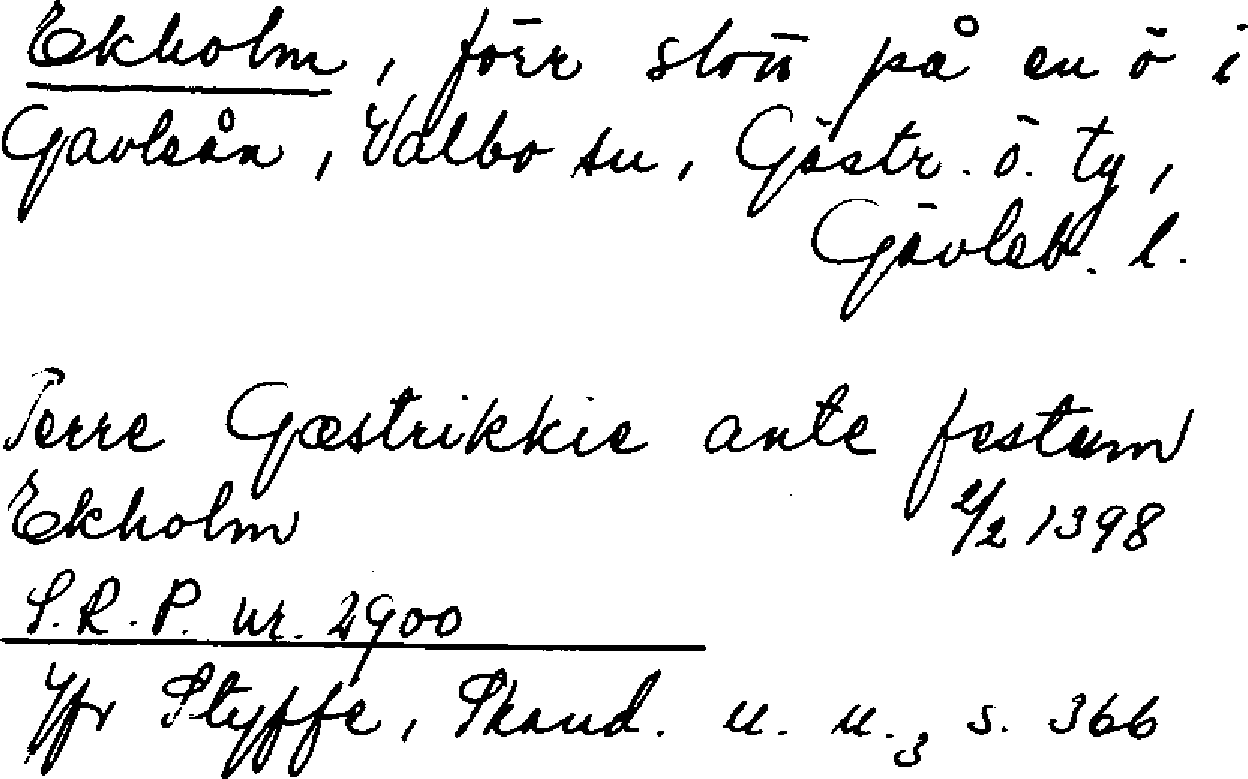 Ekholm, förr slott på en ö i
Gavleån, Valbo sn, Gästr. ö. tg,
Gävleb. l.
Terre Gæstrikkie ante festum
Ekholm 2/2 1398
S.R.P. nr. 2900
Jfr Styffe, Skand. u. u.3 s. 366